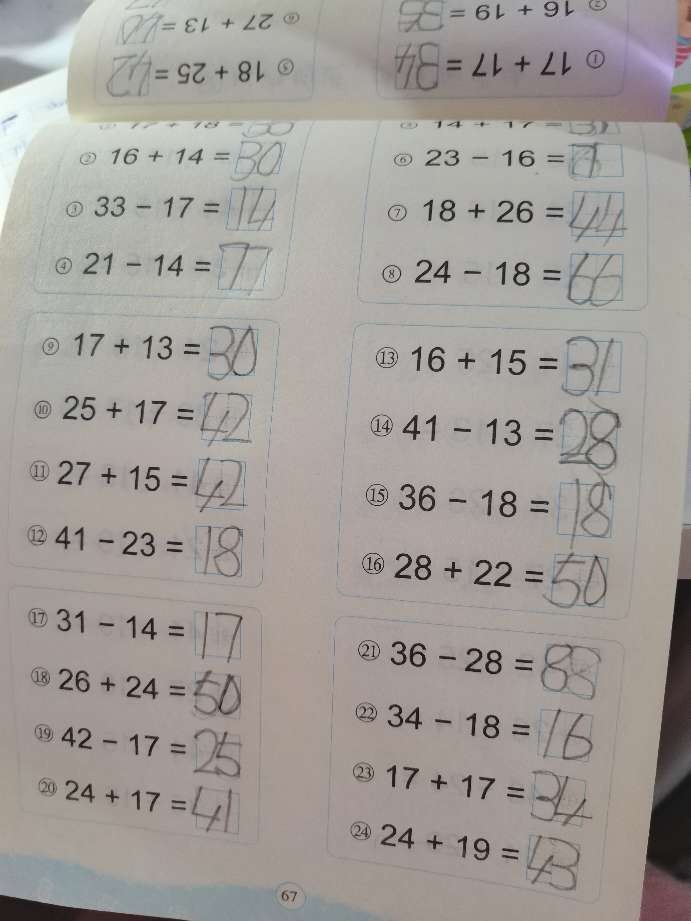 ① 17 + 17 =
② 16 + 19 =
⑤ 18 + 25 =
⑥ 27 + 13 =
② 16 + 14 = 30
③ 33 − 17 = 14
④ 21 − 14 = 77
14 + 17 = 31
⑥ 23 − 16 = 7
⑦ 18 + 26 = 44
⑧ 24 − 18 = 66
⑨ 17 + 13 = 30
⑩ 25 + 17 = 42
⑪ 27 + 15 = 42
⑫ 41 − 23 = 18
⑬ 16 + 15 = 31
⑭ 41 − 13 = 28
⑮ 36 − 18 = 18
⑯ 28 + 22 = 50
⑰ 31 − 14 = 17
⑱ 26 + 24 = 50
⑲ 42 − 17 = 25
⑳ 24 + 17 = 41
㉑ 36 − 28 = 88
㉒ 34 − 18 = 16
㉓ 17 + 17 = 34
㉔ 24 + 19 = 43
67